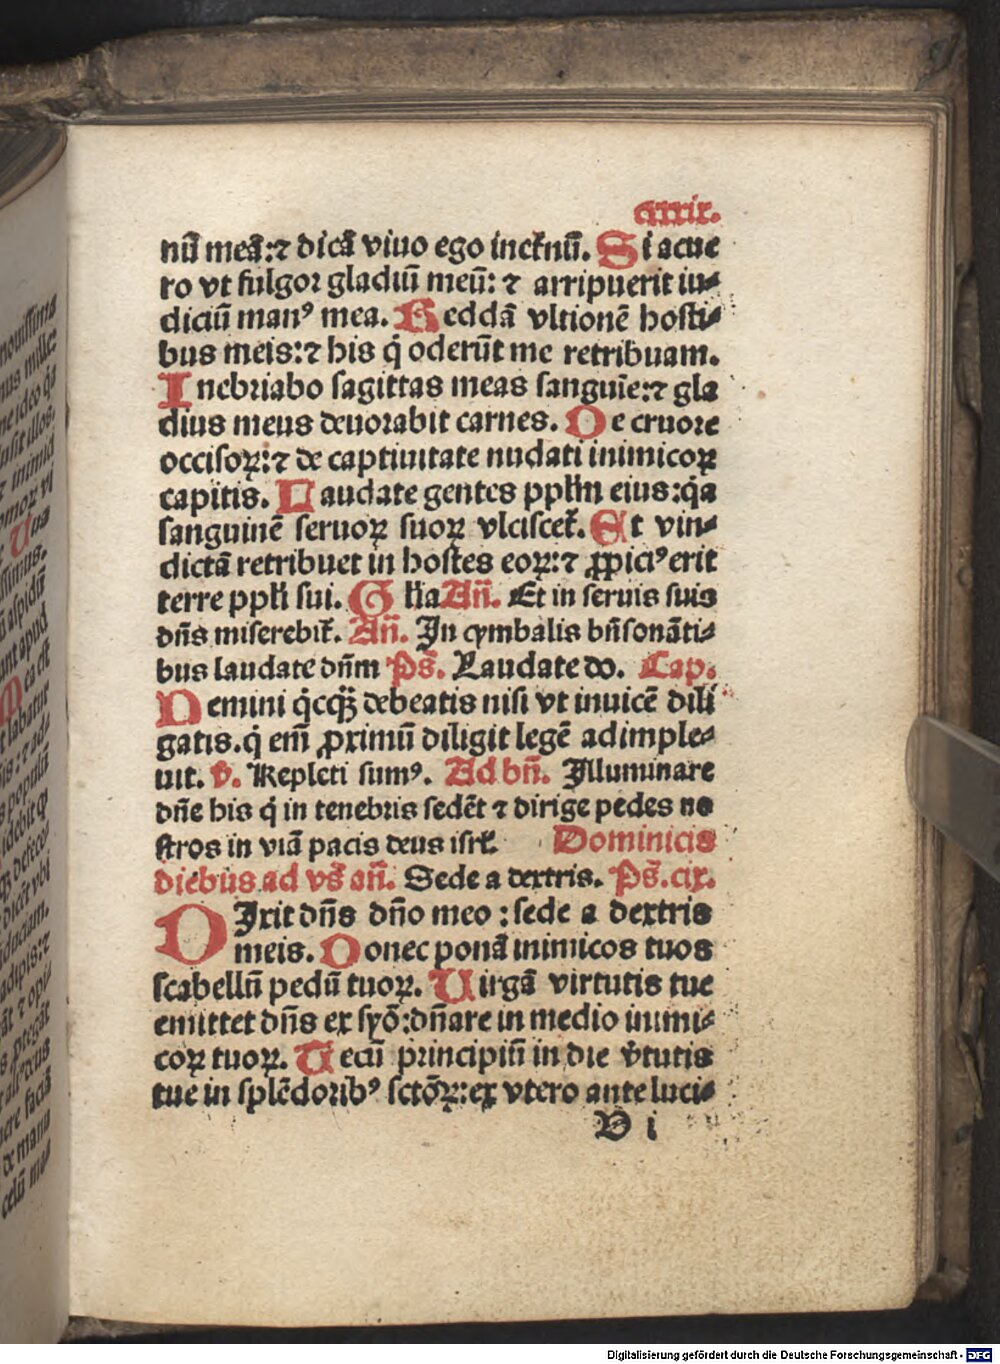 cxxix.
nū meā:⁊ dicā viuo ego inetꝛnū. Si acue
ro vt fulgoꝛ gladiū meū: ⁊ arripuerit iu⸗
diciū manꝰ mea. Reddā vltionē hosti⸗
bus meis:⁊ his q̄ oderūt me retribuam.
Inebriabo sagittas meas sanguīe:⁊ gla
dius meus deuoꝛabit carnes. De cruoꝛe
occisoꝝ:⁊ de captiuitate nudati inimicoꝝ
capitis. Laudate gentes ppľm eius:q̄a
sanguinē seruoꝝ suoꝝ vlciscet̄. Et vin⸗
dictā retribuet in hostes eoꝝ:⁊ ꝓpiciꝰ erit
terre ppľi sui. Gľia Añ. Et in seruis suis
dñs miserebit̄. Añ. In cymbalis bñsonāti⸗
bus laudate dñm Ps̄. Laudate do. Cap.
Nemini q̄cꝙ̄ debeatis nisi vt inuicē dili
gatis.q̄ em̄ ꝓximū diligit legē adimple⸗
uit. v̄. Repleti sumꝰ. Ad bñ. Illuminare
dñe his q̄ in tenebris sedēt ⁊ dirige pedes no
stros in viā pacis deus isrľ. Dominicis
diebus ad vs̄ añ. Sede a dextris. Ps̄.cix.
DIxit dñs dño meo : sede a dextris
meis. Donec ponā inimicos tuos
scabellū pedū tuoꝝ. Uirgā virtutis tue
emittet dñs ex syō:dñare in medio inimi⸗
coꝝ tuoꝝ. Tecū principiū in die v̄tutis
tue in splēdoꝛibꝰ sctōꝝ:ex vtero ante luci⸗
V i
Digitalisierung gefördert durch die Deutsche Forschungsgemeinschaft - DFG